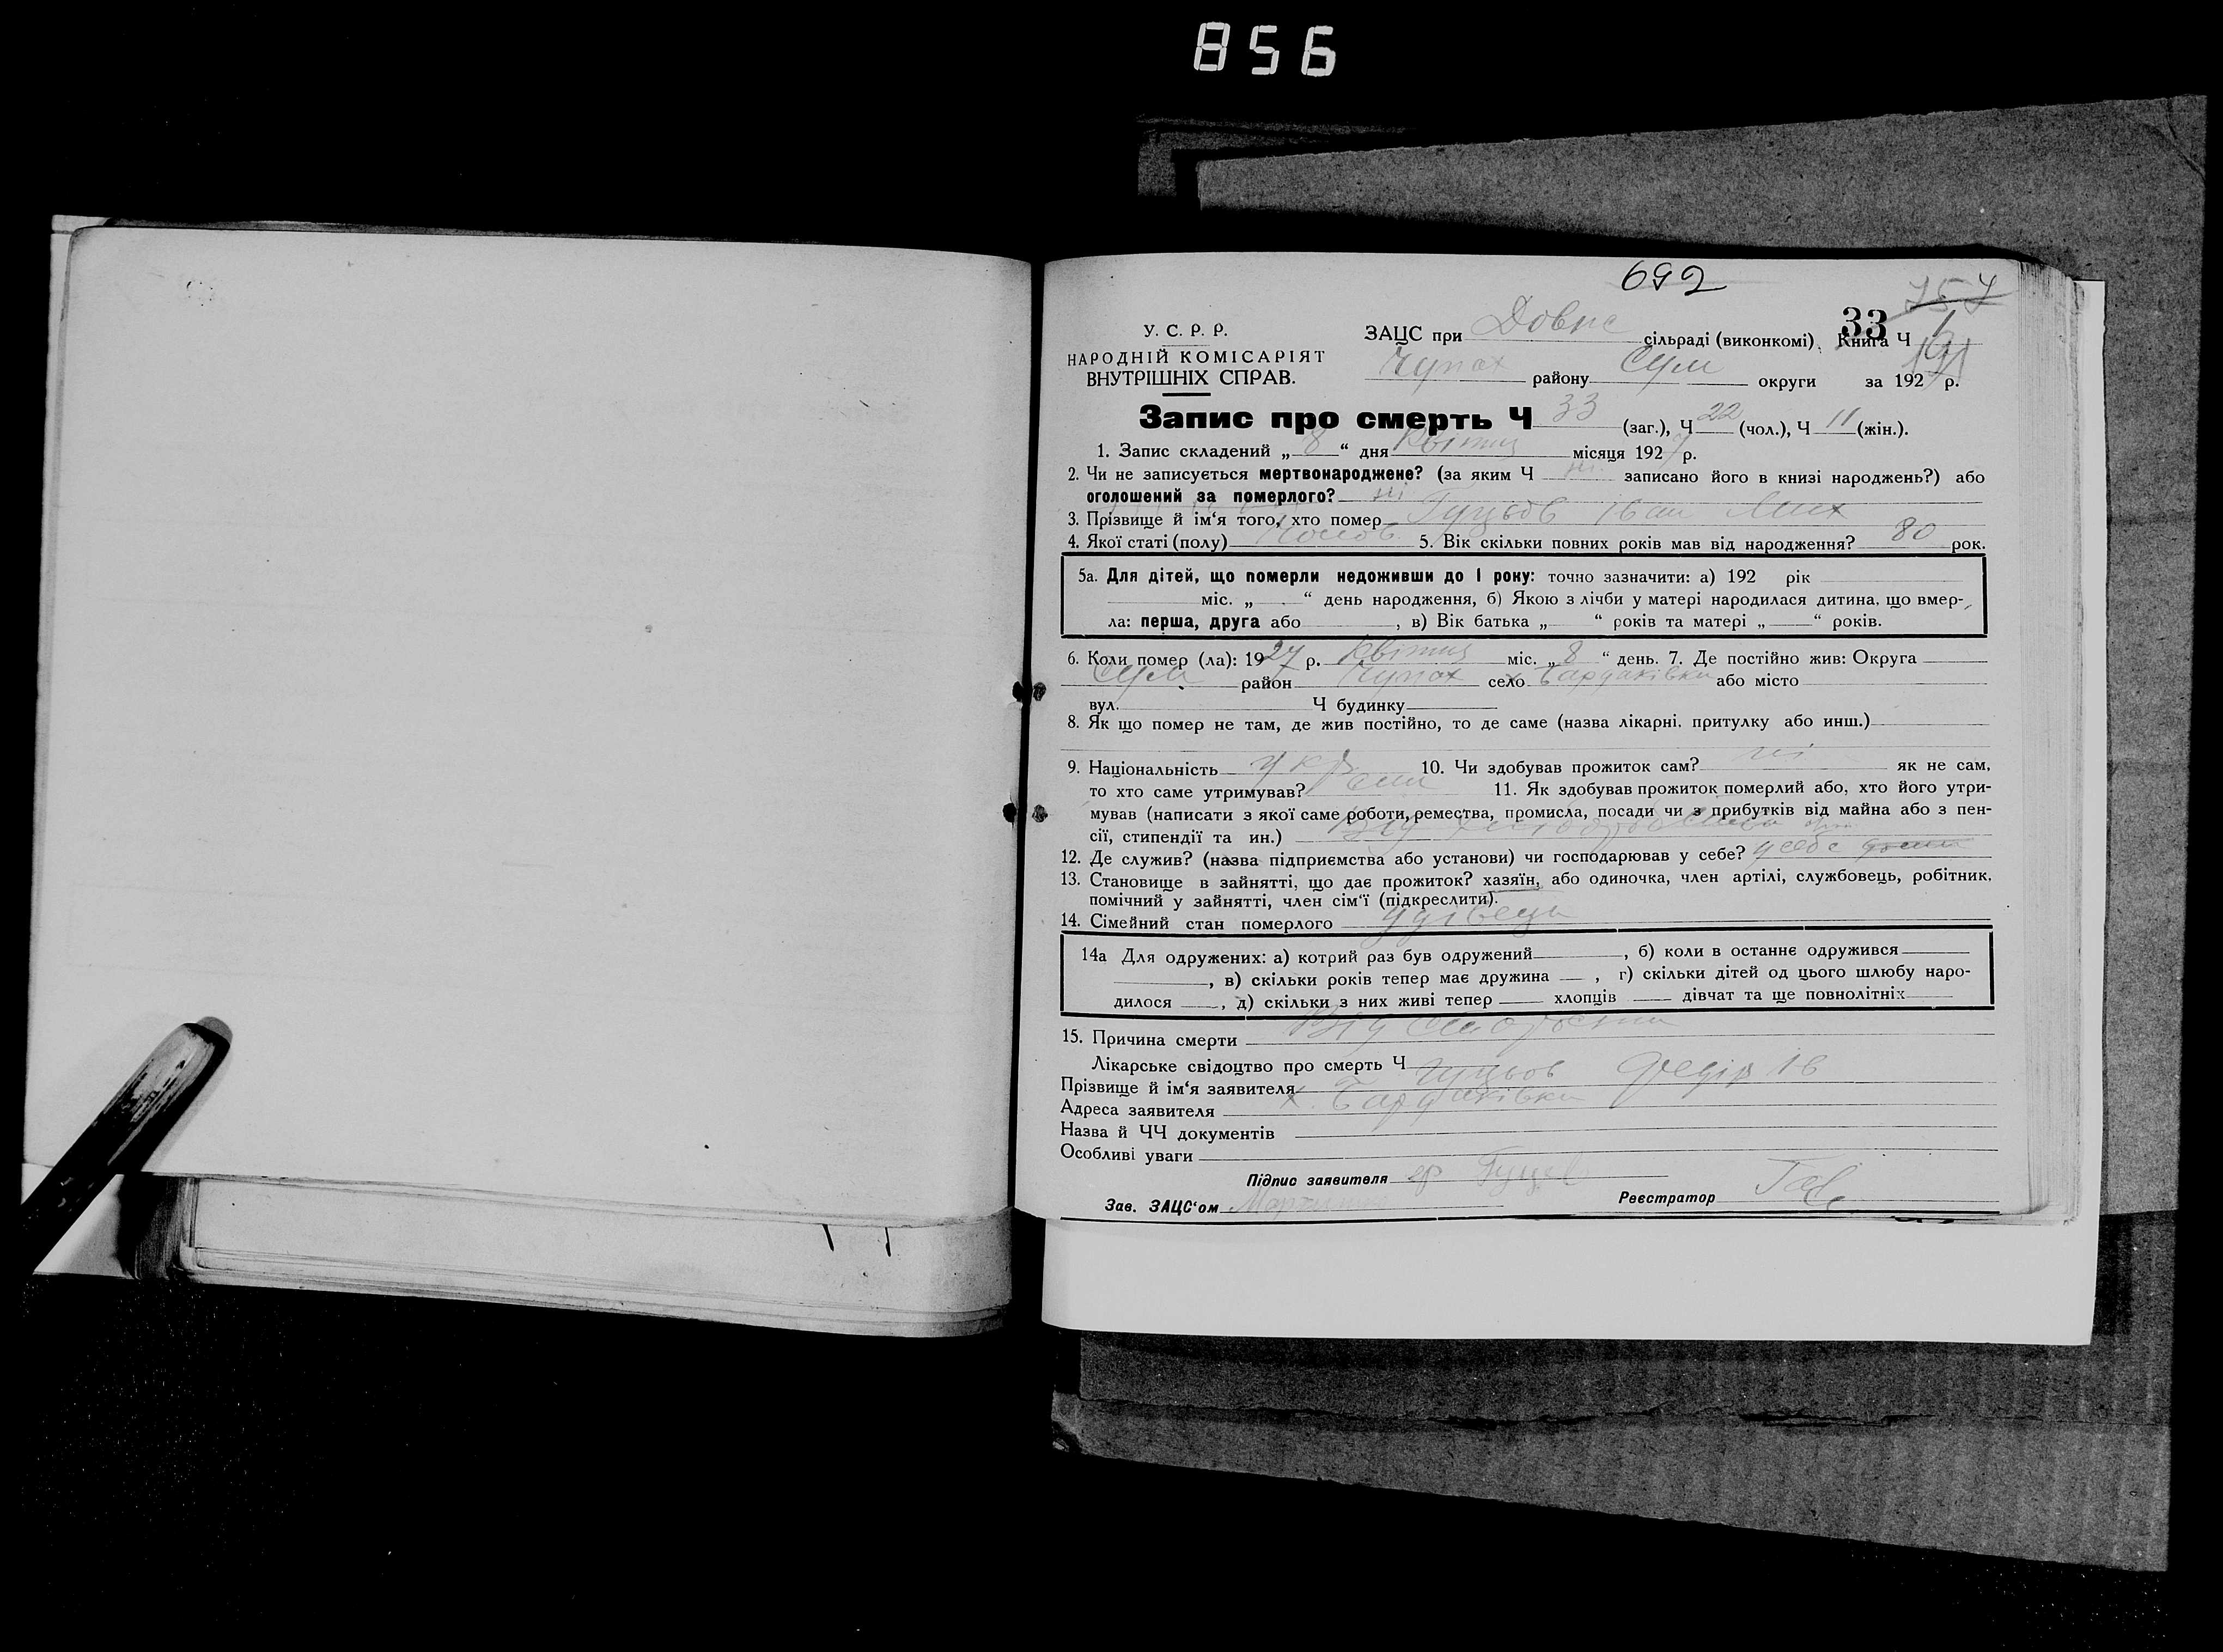 856
692
757
33
У. С. Р. Р.
НАРОДНІЙ КОМІСАРІЯТ
ВНУТРІШНІХ СПРАВ.
ЗАЦС при Довпс сільраді (виконкомі). Книга Ч
Чупах району Сум округи за 1927 р.
Запис про смерть Ч 33 (заг.), Ч 22 (чол.), Ч 11 (жін.).
1. Запис складений „ 8 “ дня Квітня місяця 1927 р.
2. Чи не записується мертвонароджене? (за яким Ч ні записано його в книзі народжень?) або
оголошений за померлого? ні
3. Прізвище й ім‘я того, хто помер Гуцьов Іван Мих
4. Якої статі (полу) Чолов 5. Вік скільки повних років мав від народження? 80 рок.
5а. Для дітей, що померли недоживши до 1 року: точно зазначити: а) 192 рік
міс. „ “ день народження, б) Якою з лічби у матері народилася дитина, що вмер-
ла: перша, друга або , в) Вік батька „ “ років та матері „ “ років.
6. Коли помер (ла): 1927 р. Квітня міс. „ 8 “ день. 7. Де постійно жив: Округа
Сум район Чупах село х Бардаківка або місто
вул. Ч будинку
8. Як що помер не там, де жив постійно, то де саме (назва лікарні, притулку або инш.)
9. Національність укр 10. Чи здобував прожиток сам? ні як не сам,
то хто саме утримував? син 11. Як здобував прожиток померлий або, хто його утри-
мував (написати з якої саме роботи, ремества, промисла, посади чи з прибутків від майна або з пен-
сії, стипендії та ин.) Від
12. Де служив? (назва підприємства або установи) чи господарював у себе? у себе
13. Становище в зайнятті, що дає прожиток? хазяїн, або одиночка, член артілі, службовець, робітник,
помічний у зайнятті, член сім‘ї (підкреслити).
14. Сімейний стан померлого удівець
14а Для одружених: а) котрий раз був одружений , б) коли в останнє одружився
, в) скільки років тепер має дружина , г) скільки дітей од цього шлюбу наро-
дилося , д) скільки з них живі тепер хлопців дівчат та ще повнолітніх
15. Причина смерти Від старости
Лікарське свідоцтво про смерть Ч
Прізвище й ім‘я заявителя Гуцьов Федір Ів
Адреса заявителя х. Бардаківка
Назва й ЧЧ документів
Особливі уваги
Підпис заявителя Гуцев
Зав. ЗАЦС‘ом Реєстратор